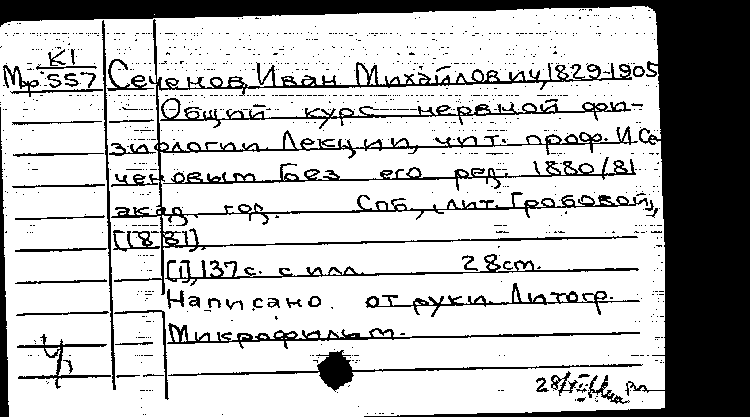 К1
Мф 557 Сеченов, Иван Михайлович, 1829-1905
Общий курс нервной фи-
зиологии Лекции, чит. проф. И.Се-
ченовым без его ред. 1880/81
акад. год. Спб., лит. Гробовой,
[1881].
[1], 137 с. с илл. 28 cm.
Написано от руки. Литогр.
Микрофильм.